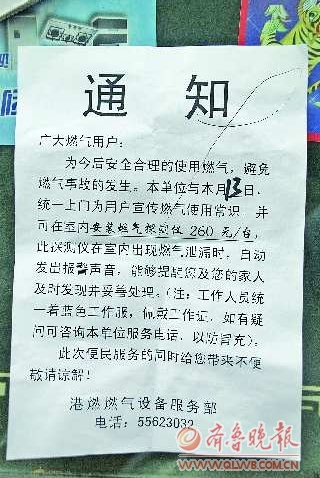 通 知
广大燃气用户:
为今后安全合理的使用燃气,避免
燃气事故的发生。本单位与本月13日,
统一上门为用户宣传燃气使用常识 并
可在室内安装燃气探测仪 260 元/台,
此探测仪在室内出现燃气泄漏时,自动
发出报警声音,能够提醒您及您的家人
及时发现并妥善处理。(注:工作人员统
一着蓝色工作服,佩戴工作证,如有疑
问可咨询本单位服务电话,以防冒充)。
此次便民服务的同时给您带来不便
敬请谅解!
港燃燃气设备服务部
电话:55623032
齐鲁晚报
WWW.QLWB.COM.CN